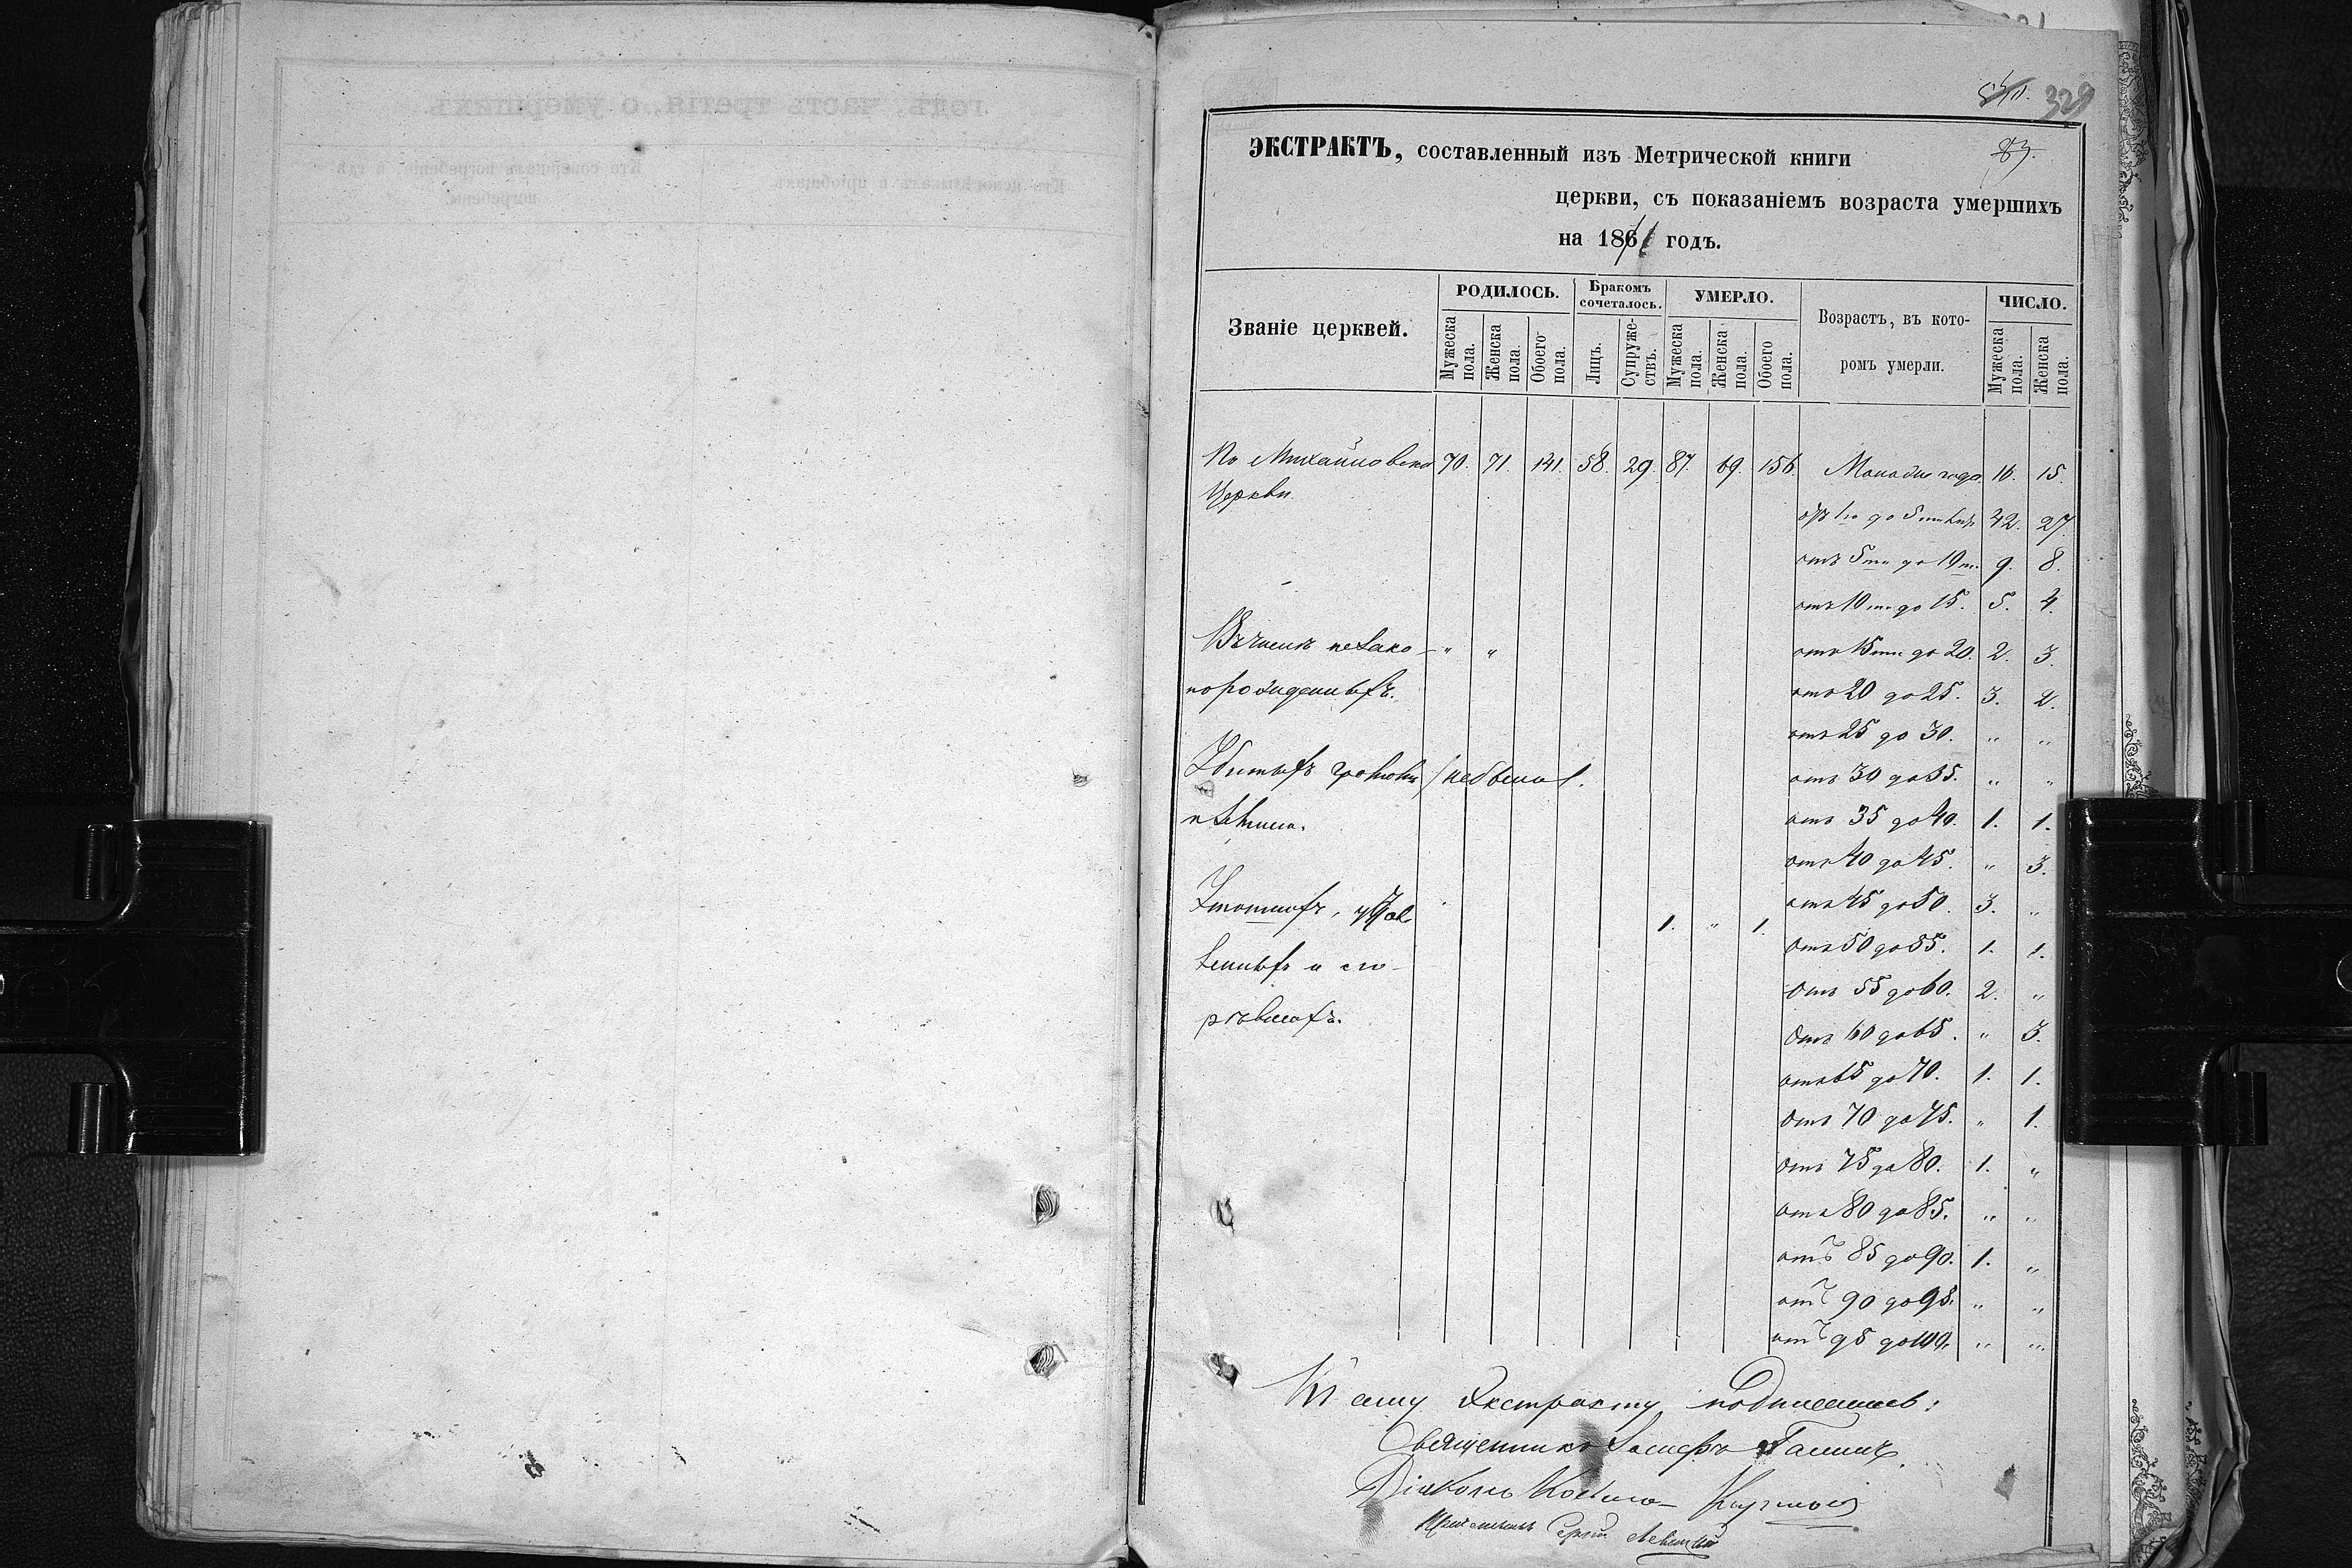 329
83.
ЭКСТРАКТЪ, составленный изъ Метрической книги
церкви, съ показаніемъ возраста умершихъ
на 1861 годъ.
Званіе церквей. РОДИЛОСЬ. Бракомъ сочеталось. УМЕРЛО. Возрастъ, въ кото- ЧИСЛО.
ромъ умерли.
Мужеска пола. Женска пола. Обоего пола. Лицъ. Супруже-ствъ. Мужеска пола. Женска пола. Обоего пола. Мужеска пола. Женска пола.
По Михайловской 70. 71. 141. 58. 29. 87. 69. 156. Моложе года 16. 15.
Церкви.
отъ 1го до 5ти лѣтъ 42. 27.
отъ 5ти до 10ти. 9. 8.
отъ 10ти до 15. 5. 4.
Въ числѣ незако- " " отъ 15ти до 20. 2. 3.
норожденныхъ. отъ 20 до 25. 3. 2.
отъ 25 до 30. " "
Убитыхъ громомъ не было. отъ 30 до 35. " "
отъ 35 до 40. 1. 1.
отъ 40 до 45. " 3.
1. " 1. отъ 45 до 50. 3. "
отъ 50 до 55. 1. 1.
отъ 55 до 60. 2. "
отъ 60 до 65. " 3.
отъ 65 до 70. 1. 1.
отъ 70 до 75. " 1.
отъ 75 до 80. 1. "
отъ 80 до 85. " "
отъ 85 до 90. 1. "
отъ 90 до 95. " "
отъ 95 до 100. " "
Къ сему Экстракту подписались:
Священникъ Іосифъ
Діаконъ Косьма
Сергій